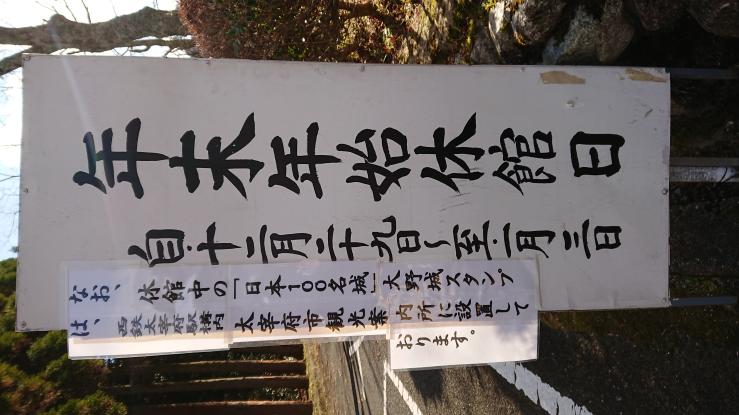 年末年始休館日
自・十二月二十九日～至・一月三日
なお、休館中の「日本100名城」大野城スタンプ
は、西鉄太宰府駅構内太宰府市観光案内所に設置して
おります。